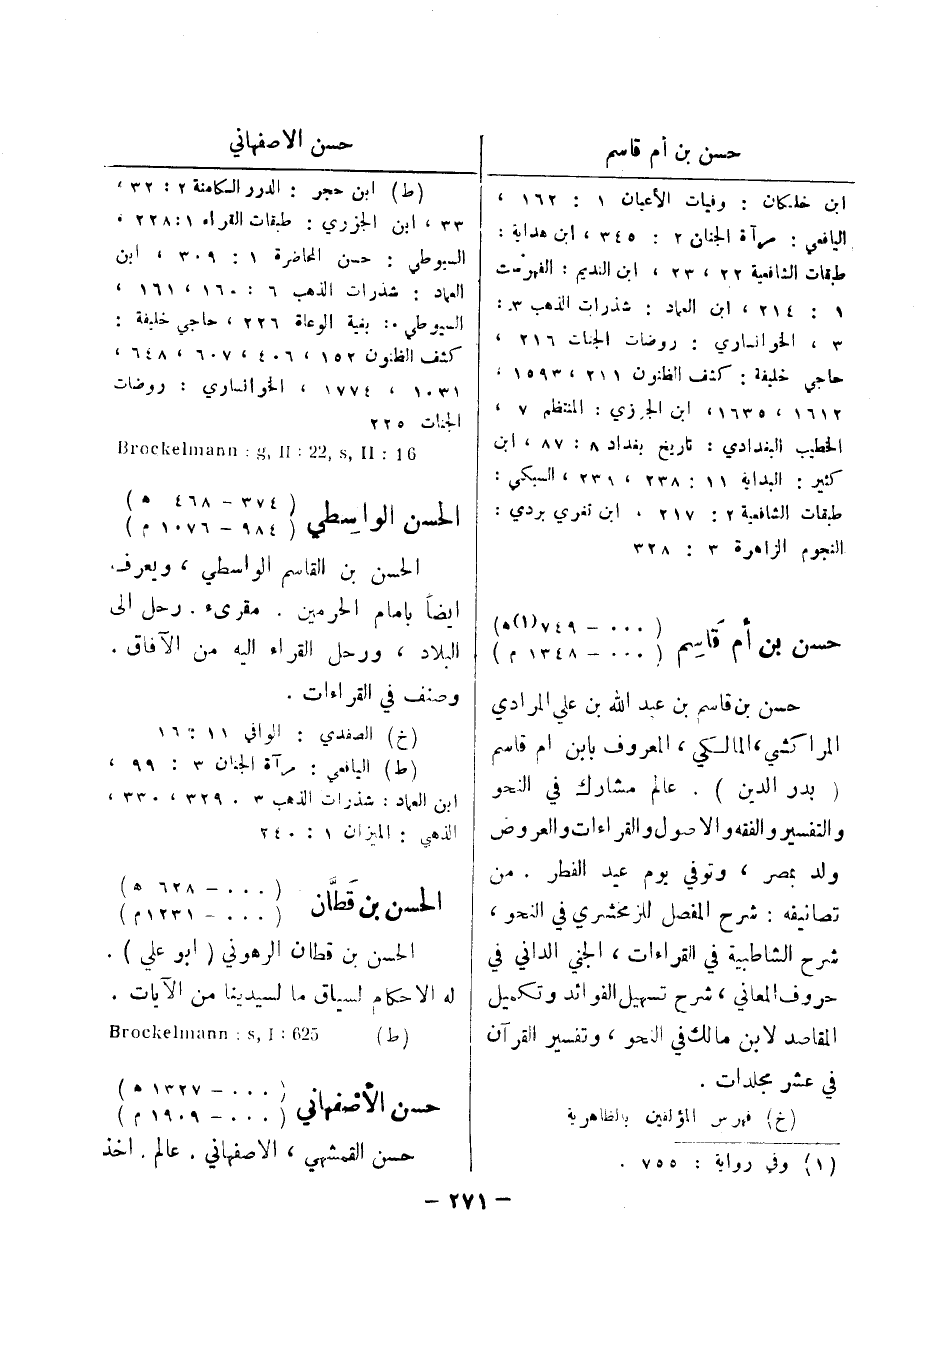 حسن بن أم قاسم
ابن خلكان : وفيات الأعيان ١ : ١٦٢ ،
اليافعي : مرآة الجنان ٢ : ٣٤٥ ، ابن هداية :
طبقات الشافعية ٢٢ ، ٢٣ ، ابن النديم : الفهرست
١ : ٢١٤ ، ابن العماد : شذرات الذهب ٣ :
٣ ، الخوانساري : روضات الجنات ٢١٦ ،
حاجي خليفة : كشف الظنون ٢١١ ، ١٥٩٣ ،
١٦١٢ ، ١٦٣٥ ، ابن الجوزي : المنتظم ٧ ،
الخطيب البغدادي : تاريخ بغداد ٨ : ٨٧ ، ابن
كثير : البداية ١١ : ٢٣٨ ، ٢٣٩ ، السبكي :
طبقات الشافعية ٢ : ٢١٧ ، ابن تغري بردي :
النجوم الزاهرة ٣ : ٣٢٨
حسن بن أم قَاسِم ( ٠٠٠ – ٧٤٩(١)ه)
( ٠٠٠ – ١٣٤٨ م )
حسن بن قاسم بن عبد الله بن علي المرادي
المراكشي ، المالكي ، المعروف بابن ام قاسم
( بدر الدين ) . عالم مشارك في النحو
والتفسير والفقه والاصول والقراءات والعروض
ولد بمصر ، وتوفي يوم عيد الفطر . من
تصانيفه : شرح المفصل للزمخشري في النحو ،
شرح الشاطبية في القراءات ، الجني الداني في
حروف المعاني ، شرح تسهيل الفوائد وتكميل
المقاصد لابن مالك في النحو ، وتفسير القرآن
في عشر مجلدات .
(خ) فهرس المؤلفين بالظاهرية
(١) وفي رواية : ٧٥٥ .
حسن الاصفهاني
(ط) ابن حجر : الدرر الكامنة ٢ : ٣٢ ،
٣٣ ، ابن الجزري : طبقات القراء ١ : ٢٢٨ ،
السيوطي : حسن المحاضرة ١ : ٣٠٩ ، ابن
العماد : شذرات الذهب ٦ : ١٦٠ ، ١٦١ ،
السيوطي : بغية الوعاة ٢٢٦ ، حاجي خليفة :
كشف الظنون ١٥٢ ، ٤٠٦ ، ٦٠٧ ، ٦٤٨ ،
١٠٣١ ، ١٧٧٤ ، الخوانساري : روضات
الجنات ٢٢٥
Brockelmann : g, II : 22, s, II : 16
الحسن الواسِطي ( ٣٧٤ – ٤٦٨ ه )
( ٩٨٤ – ١٠٧٦ م )
الحسن بن القاسم الواسطي ، ويعرف
ايضاً بامام الحرمين . مقرىء . رحل الى
البلاد ، ورحل القراء اليه من الآفاق .
وصنف في القراءات .
(خ) الصفدي : الوافي ١١ : ١٦
(ط) اليافعي : مرآة الجنان ٣ : ٩٩ ،
ابن العماد : شذرات الذهب ٣ . ٣٢٩ ، ٣٣٠ ،
الذهبي : الميزان ١ : ٢٤٠
الحسن بن قَطَّان ( ٠٠٠ – ٦٢٨ ه )
( ٠٠٠ – ١٢٣١ م )
الحسن بن قطان الرهوني ( ابو علي ) .
له الاحكام لسياق ما لسيدينا من الآيات .
(ط) Brockelmann : s, I : 625
حسن الأصْفهاني ( ٠٠٠ – ١٣٢٧ ه )
( ٠٠٠ – ١٩٠٩ م )
حسن القمشهي ، الاصفهاني . عالم . اخذ
– ٢٧١ –